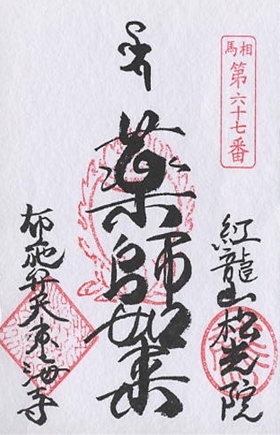 相馬
第六十七番
紅龍山松光院
薬師如来
布施弁天東海寺